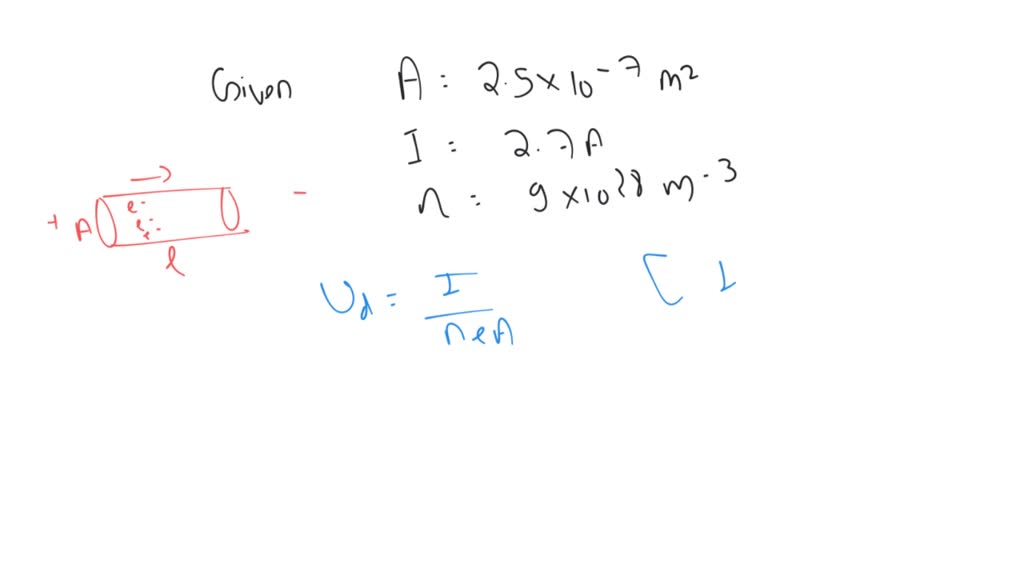 Given A = 2.5×10⁻⁷ m²
I = 2.7A
n = 9×10²⁸ m⁻³
+ A e- e- e- -
l
Ud = I / neA [ I